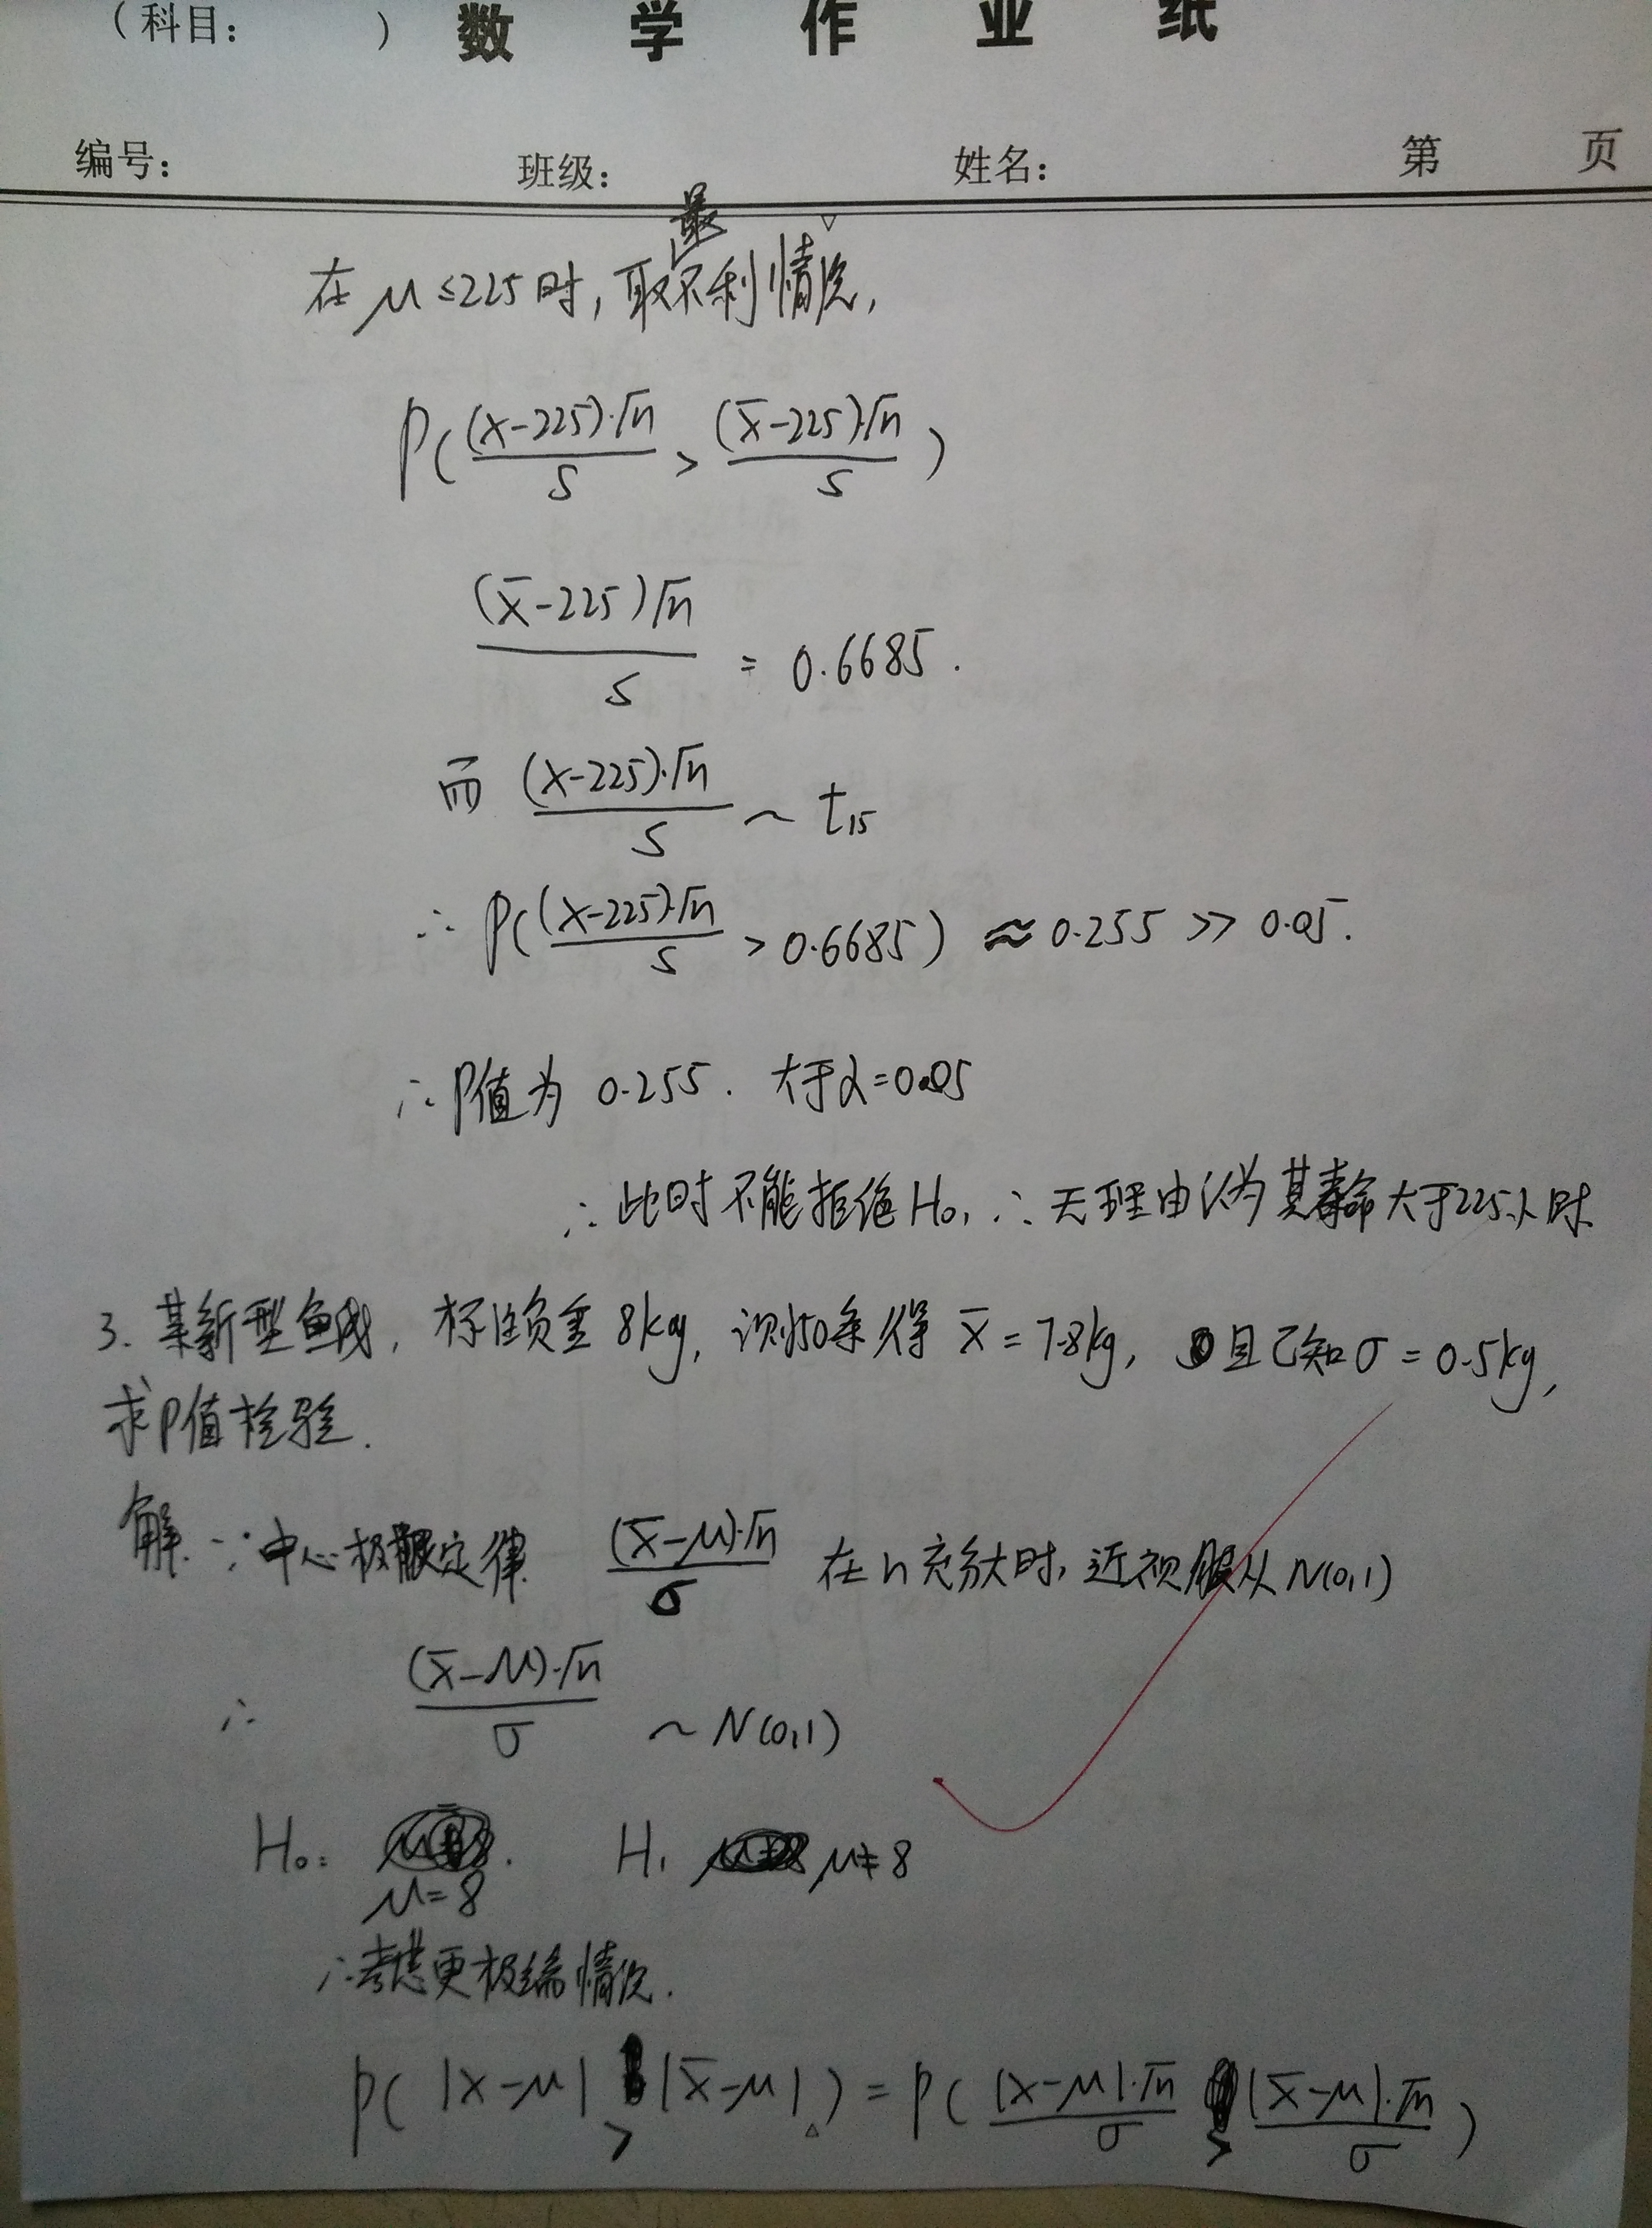 （科目： ）数学作业纸
编号： 班级： 姓名： 第 页
在μ≤225时，取最不利情况，
P((x-225)·√n/S > (x̄-225)·√n/S)
(x̄-225)√n/S = 0.6685.
而 (x-225)·√n/S ~ t₁₅
∴ P((x-225)·√n/S > 0.6685) ≈ 0.255 >> 0.05.
∴ P值为 0.255. 大于α=0.05
∴ 此时不能拒绝H₀, ∴ 无理由认为其寿命大于225小时
3. 某新型鱼线, 标准负重 8kg, 测50条得 x̄ = 7.8kg, 且已知σ = 0.5kg,
求P值检验.
解: ∵ 中心极限定律 (x̄-μ)·√n/σ 在n充分大时, 近视服从N(0,1)
∴ (x̄-μ)·√n/σ ~ N(0,1)
H₀: H₁ μ≠8
μ=8
∴考虑更极端情况.
P( |x-μ| > |x̄-μ| ) = P( |x-μ|·√n/σ > |x̄-μ|·√n/σ )